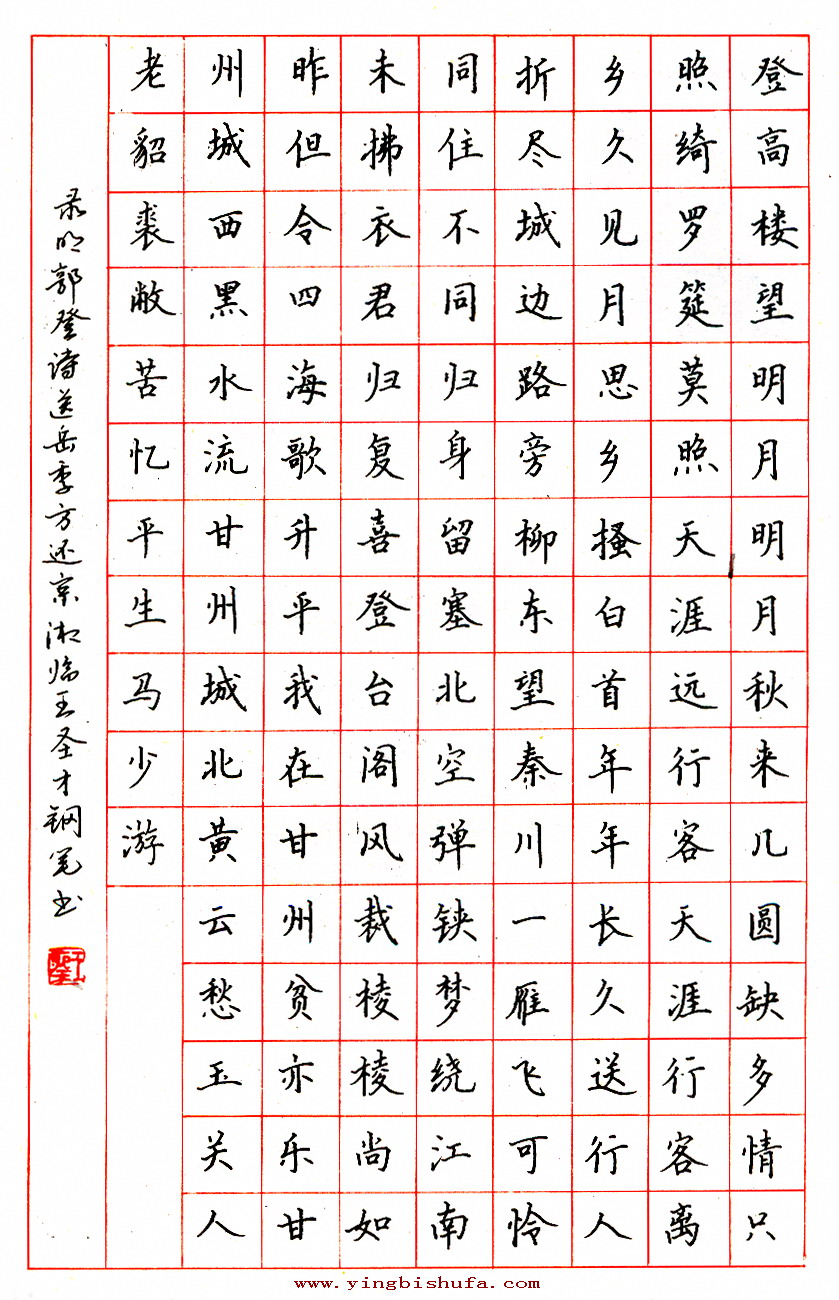 登高楼望明月明月秋来几圆缺多情只
照绮罗筵莫照天涯远行客天涯行客离
乡久见月思乡搔白首年年长久送行人
折尽城边路旁柳东望秦川一雁飞可怜
同住不同归身留塞北空弹铗梦绕江南
未拂衣君归复喜登台阁风裁棱棱尚如
昨但令四海歌升平我在甘州贫亦乐甘
州城西黑水流甘州城北黄云愁玉关人
老貂裘敝苦忆平生马少游
录明郭登诗送岳季方还京湘临王圣才钢笔书
www.yingbishufa.com